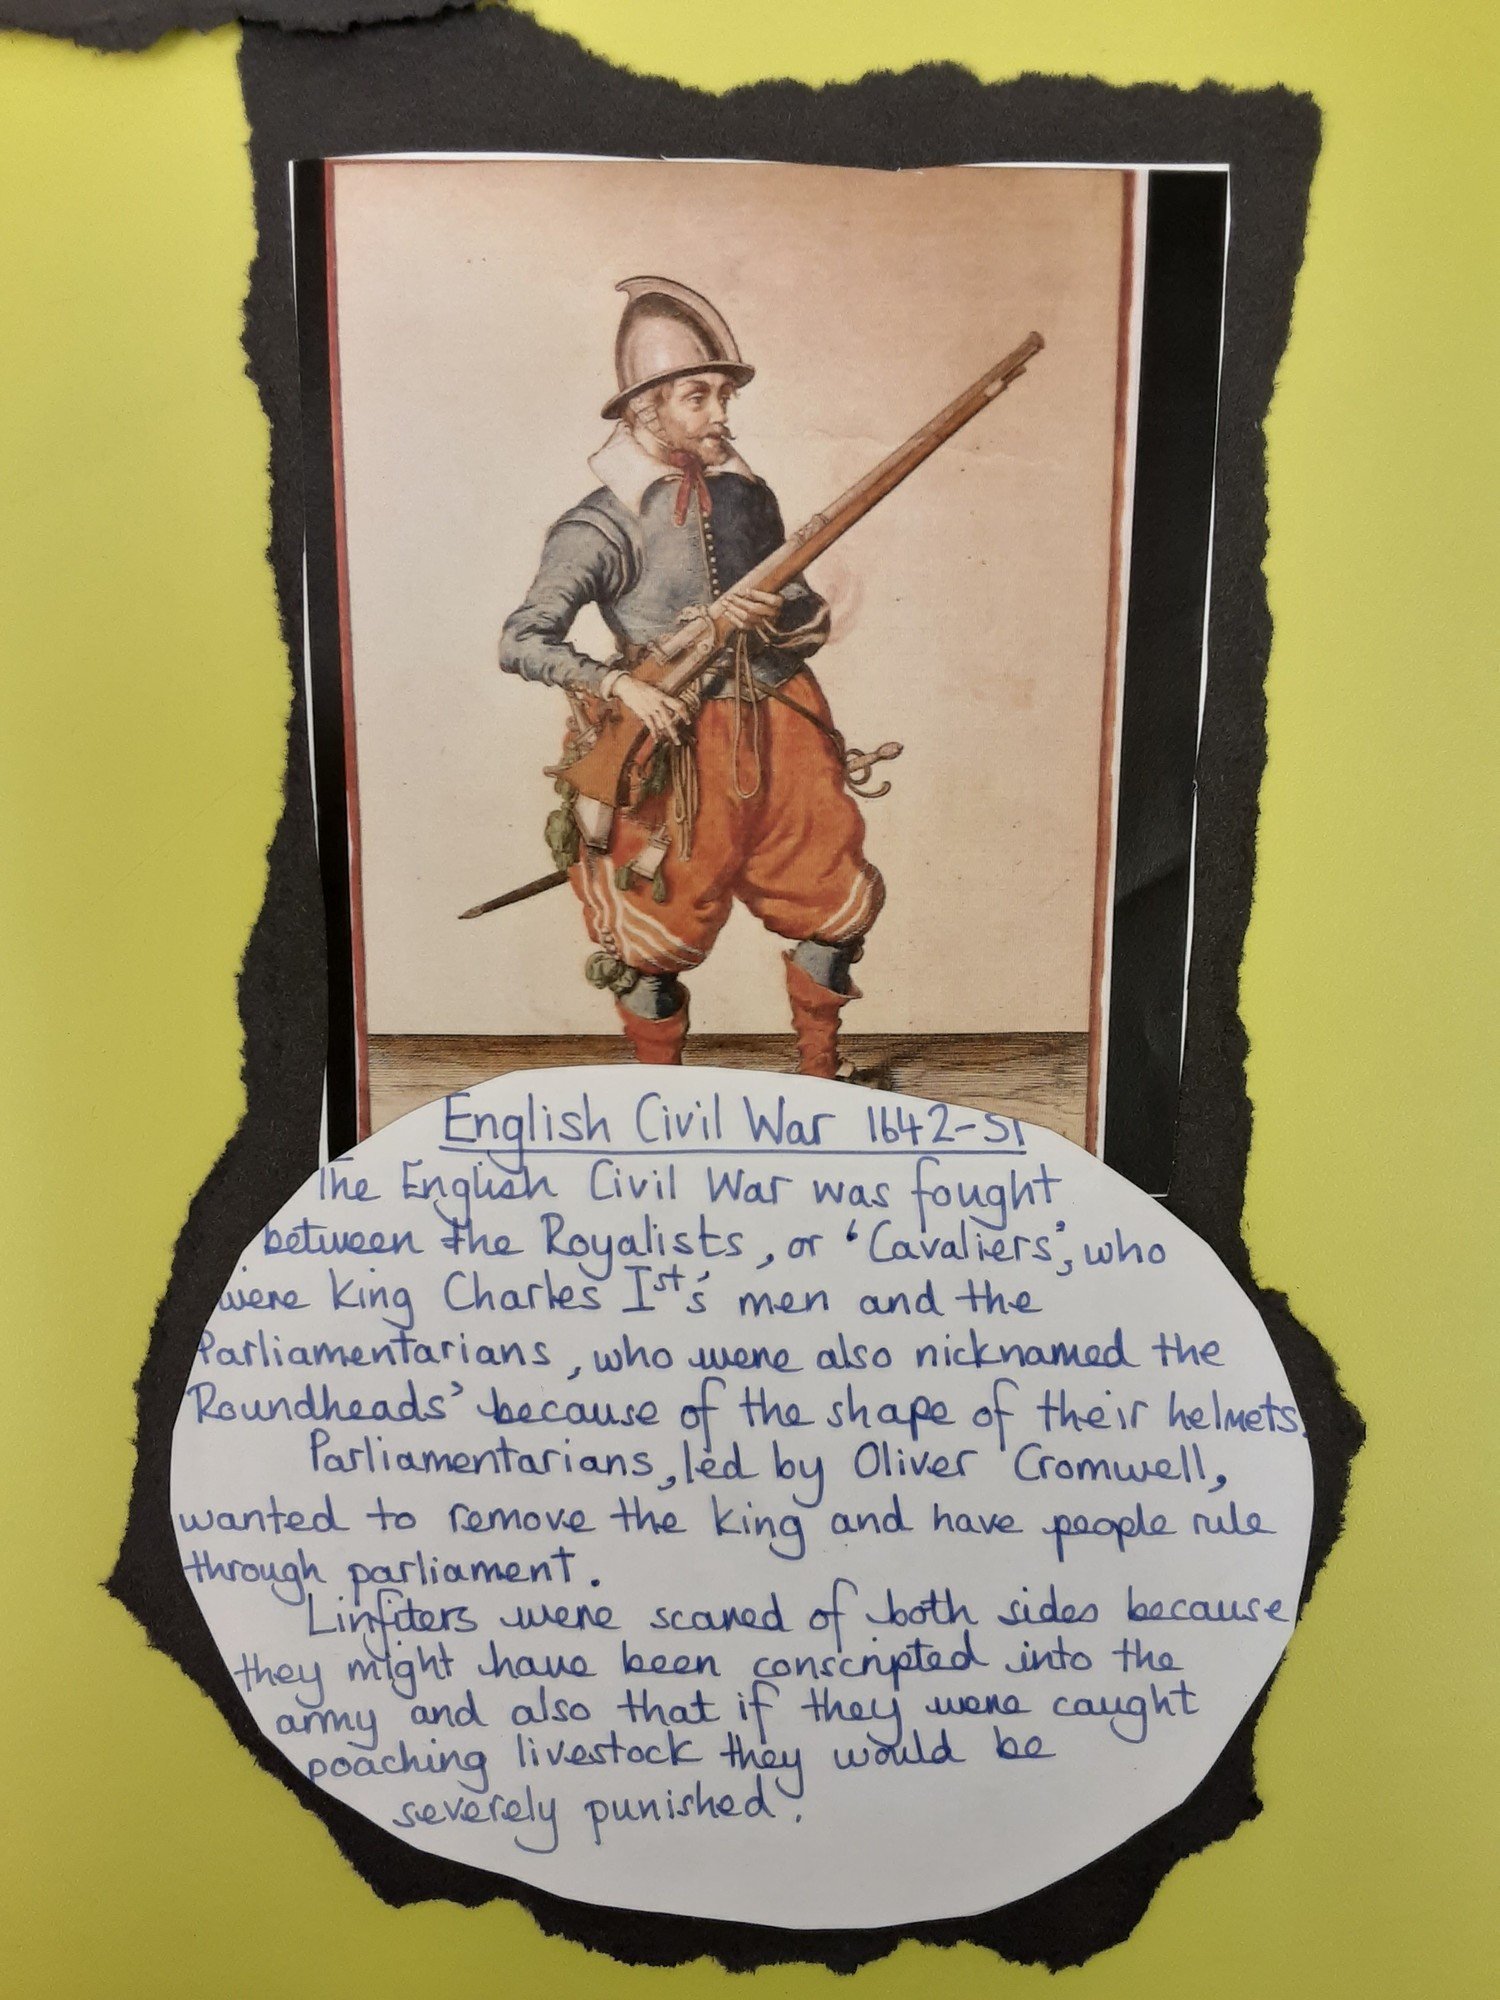 English Civil War 1642-51
The English Civil War was fought
between the Royalists, or 'Cavaliers', who
were King Charles Ist's men and the
Parliamentarians, who were also nicknamed the
Roundheads' because of the shape of their helmets.
Parliamentarians, led by Oliver Cromwell,
wanted to remove the king and have people rule
through parliament.
Linfiters were scared of both sides because
they might have been conscripted into the
army and also that if they were caught
poaching livestock they would be
severely punished.